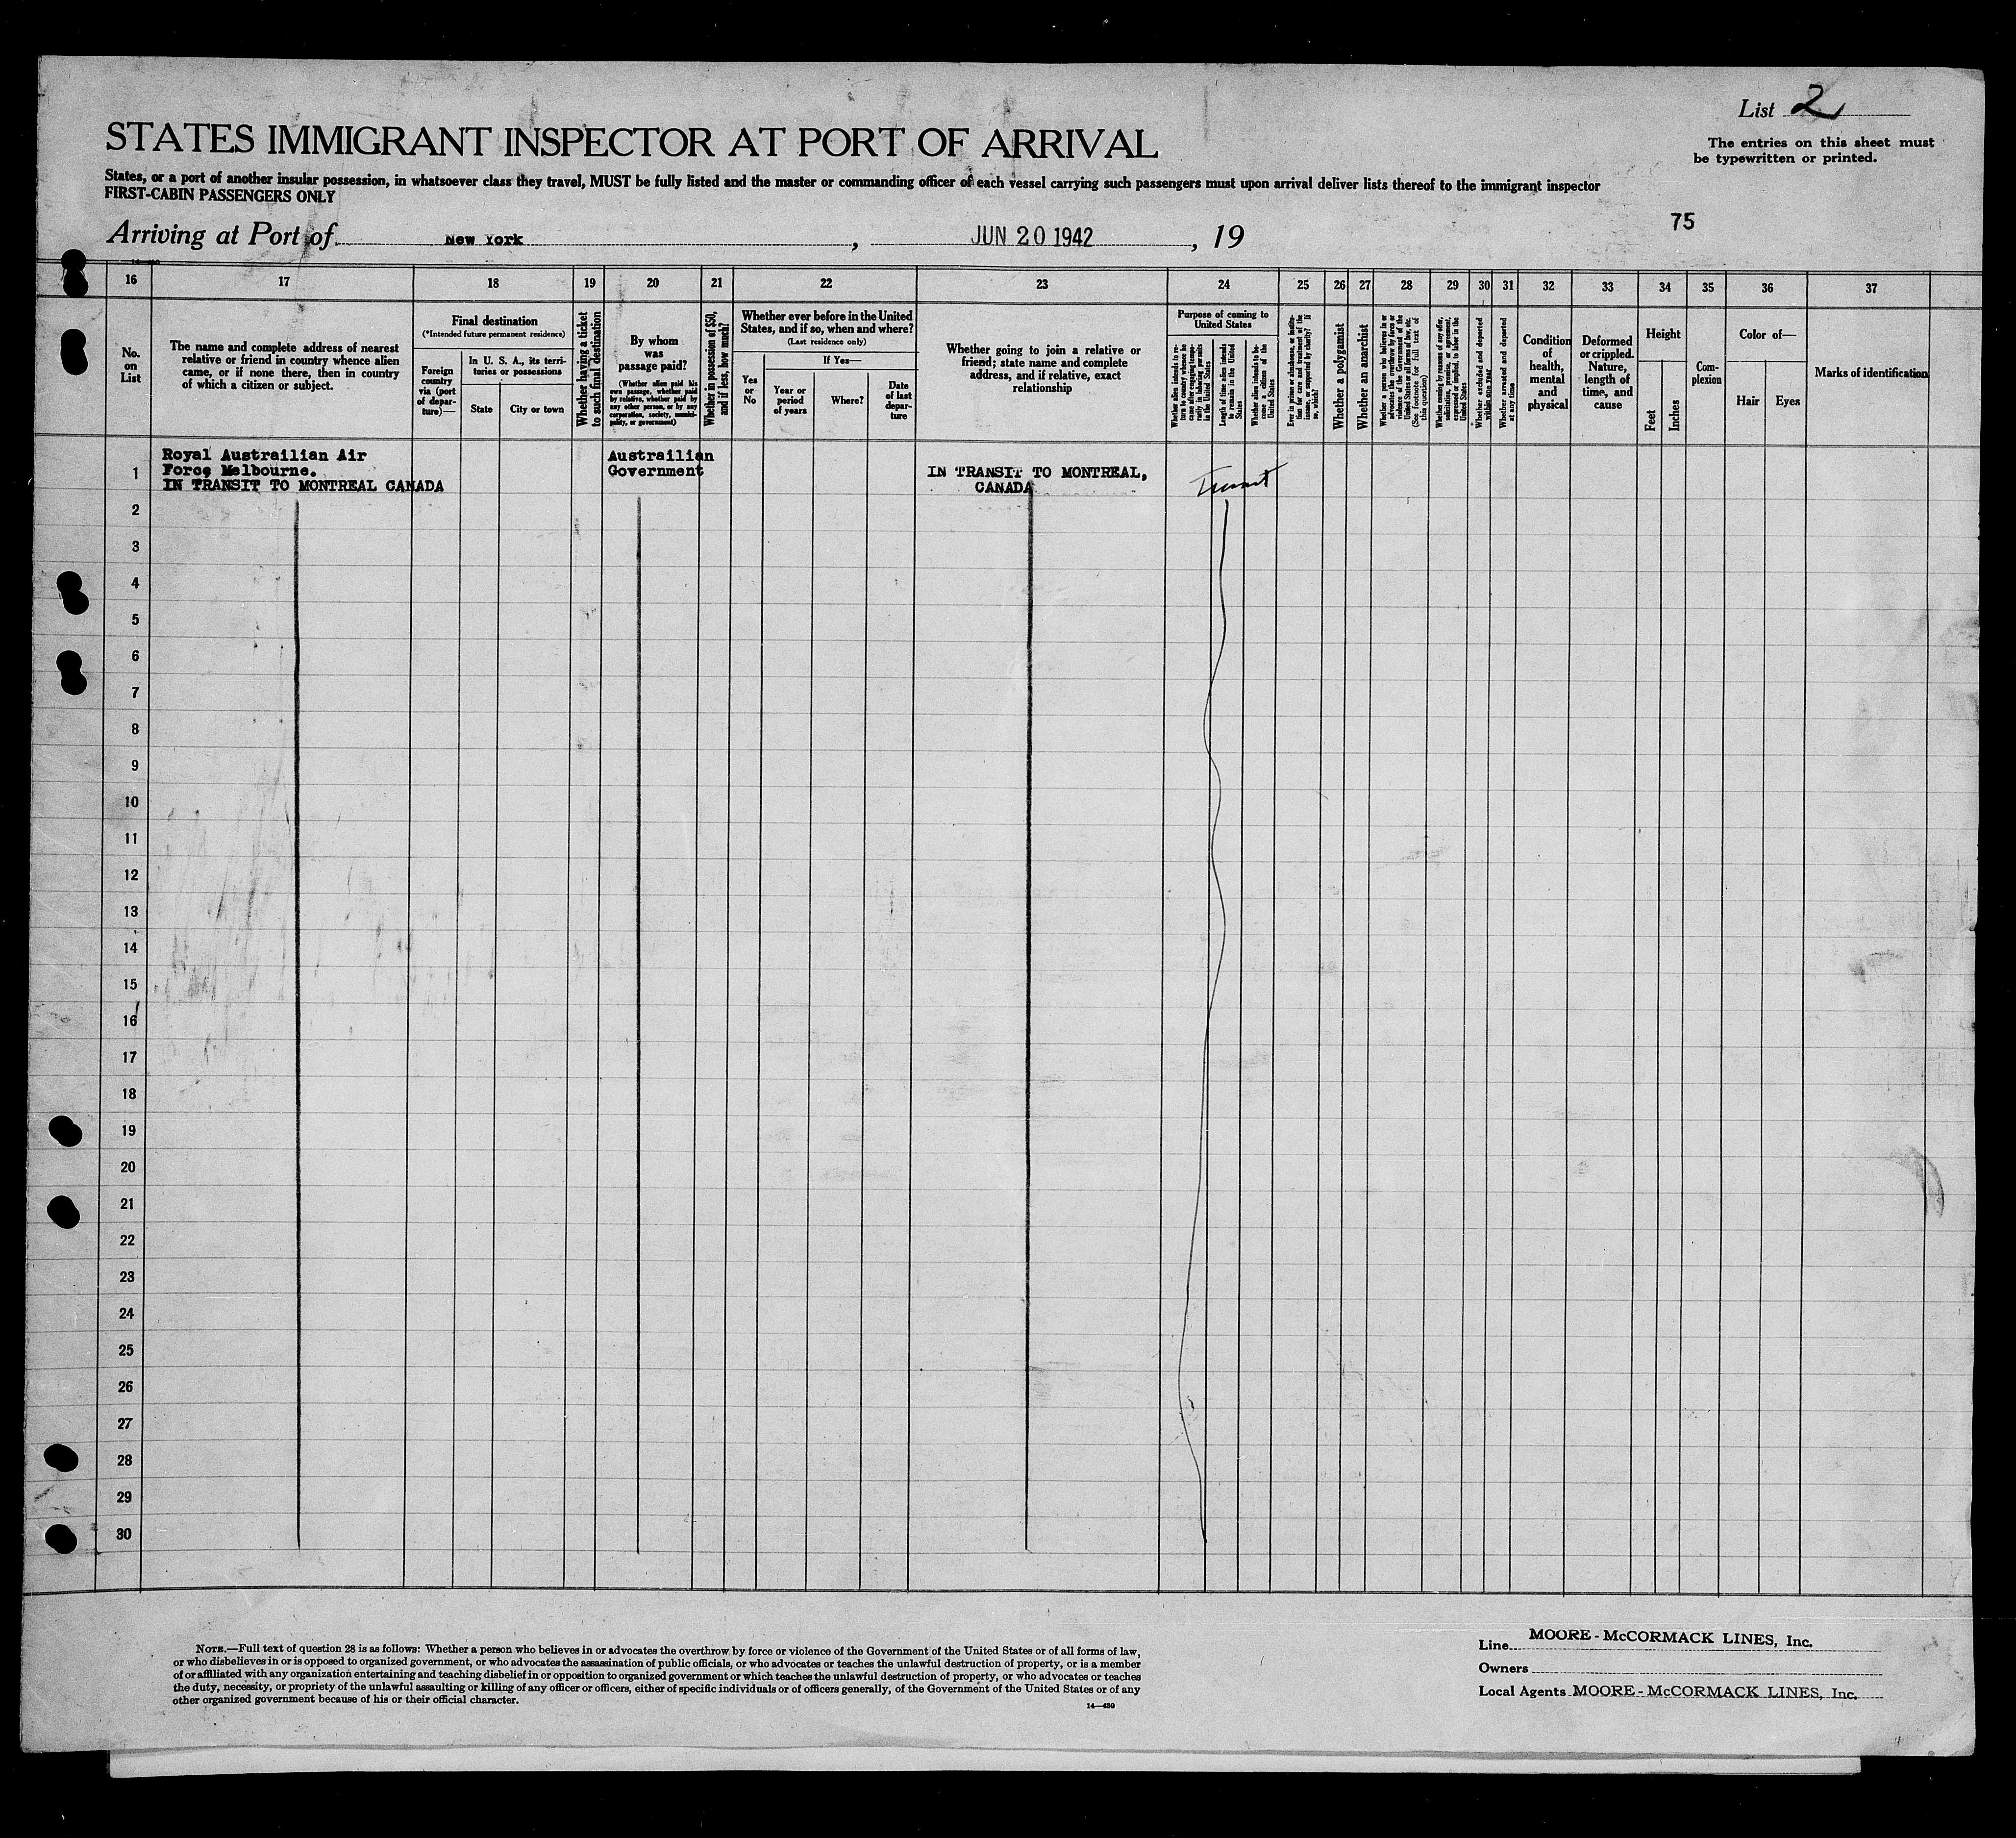 List 2
The entries on this sheet must
be typewritten or printed.
STATES IMMIGRANT INSPECTOR AT PORT OF ARRIVAL
States, or a port of another insular possession, in whatsoever class they travel, MUST be fully listed and the master or commanding officer of each vessel carrying such passengers must upon arrival deliver lists thereof to the immigrant inspector
FIRST-CABIN PASSENGERS ONLY
75
Arriving at Port of New York, JUN 20 1942, 19
16 17 18 19 20 21 22 23 24 25 26 27 28 29 30 31 32 33 34 35 36 37
No.
on
List
The name and complete address of nearest
relative or friend in country whence alien
came, or if none there, then in country
of which a citizen or subject.
Final destination
(*Intended future permanent residence)
Foreign
country
via (port
of depar-
ture)—
In U. S. A., its terri-
tories or possessions
State
City or town
Whether having a ticket
to such final destination
By whom
was
passage paid?
(Whether alien paid his
own passage, whether paid
by relative, whether paid by
any other person, or by any
corporation, society, munici-
pality, or government)
Whether in possession of $50,
and if less, how much?
Whether ever before in the United
States, and if so, when and where?
(Last residence only)
Yes
or
No
If Yes—
Year or
period
of years
Where?
Date
of last
depar-
ture
Whether going to join a relative or
friend; state name and complete
address, and if relative, exact
relationship
Purpose of coming to
United States
Whether alien intends to re-
turn to country whence he
came after engaging tempo-
rarily in laboring pursuits
in the United States
Length of time alien intends
to remain in the United
States
Whether alien intends to be-
come a citizen of the
United States
Ever in prison or almshouse, or institu-
tion for care and treatment of the
insane, or supported by charity? If
so, which?
Whether a polygamist
Whether an anarchist
Whether a person who believes in or
advocates the overthrow by force or
violence of the Government of the
United States or all forms of law, etc.
(See footnote for full text of
this question)
Whether coming by reasons of any offer,
solicitation, promise, or agreement,
expressed or implied, to labor in the
United States
Whether excluded and deported
within one year
Whether arrested and deported
at any time
Condition
of
health,
mental
and
physical
Deformed
or crippled.
Nature,
length of
time, and
cause
Height
Feet
Inches
Com-
plexion
Color of—
Hair
Eyes
Marks of identification
1
Royal Austrailian Air
Force Melbourne.
IN TRANSIT TO MONTREAL CANADA
Austrailian
Government
IN TRANSIT TO MONTREAL,
CANADA
2
3
4
5
6
7
8
9
10
11
12
13
14
15
16
17
18
19
20
21
22
23
24
25
26
27
28
29
30
NOTE.—Full text of question 28 is as follows: Whether a person who believes in or advocates the overthrow by force or violence of the Government of the United States or of all forms of law,
or who disbelieves in or is opposed to organized government, or who advocates the assassination of public officials, or who advocates or teaches the unlawful destruction of property, or is a member
of or affiliated with any organization entertaining and teaching disbelief in or opposition to organized government or which teaches the unlawful destruction of property, or who advocates or teaches
the duty, necessity, or propriety of the unlawful assaulting or killing of any officer or officers, either of specific individuals or of officers generally, of the Government of the United States or of any
other organized government because of his or their official character.
14—430
Line MOORE-McCORMACK LINES, Inc.
Owners
Local Agents MOORE-McCORMACK LINES, Inc.